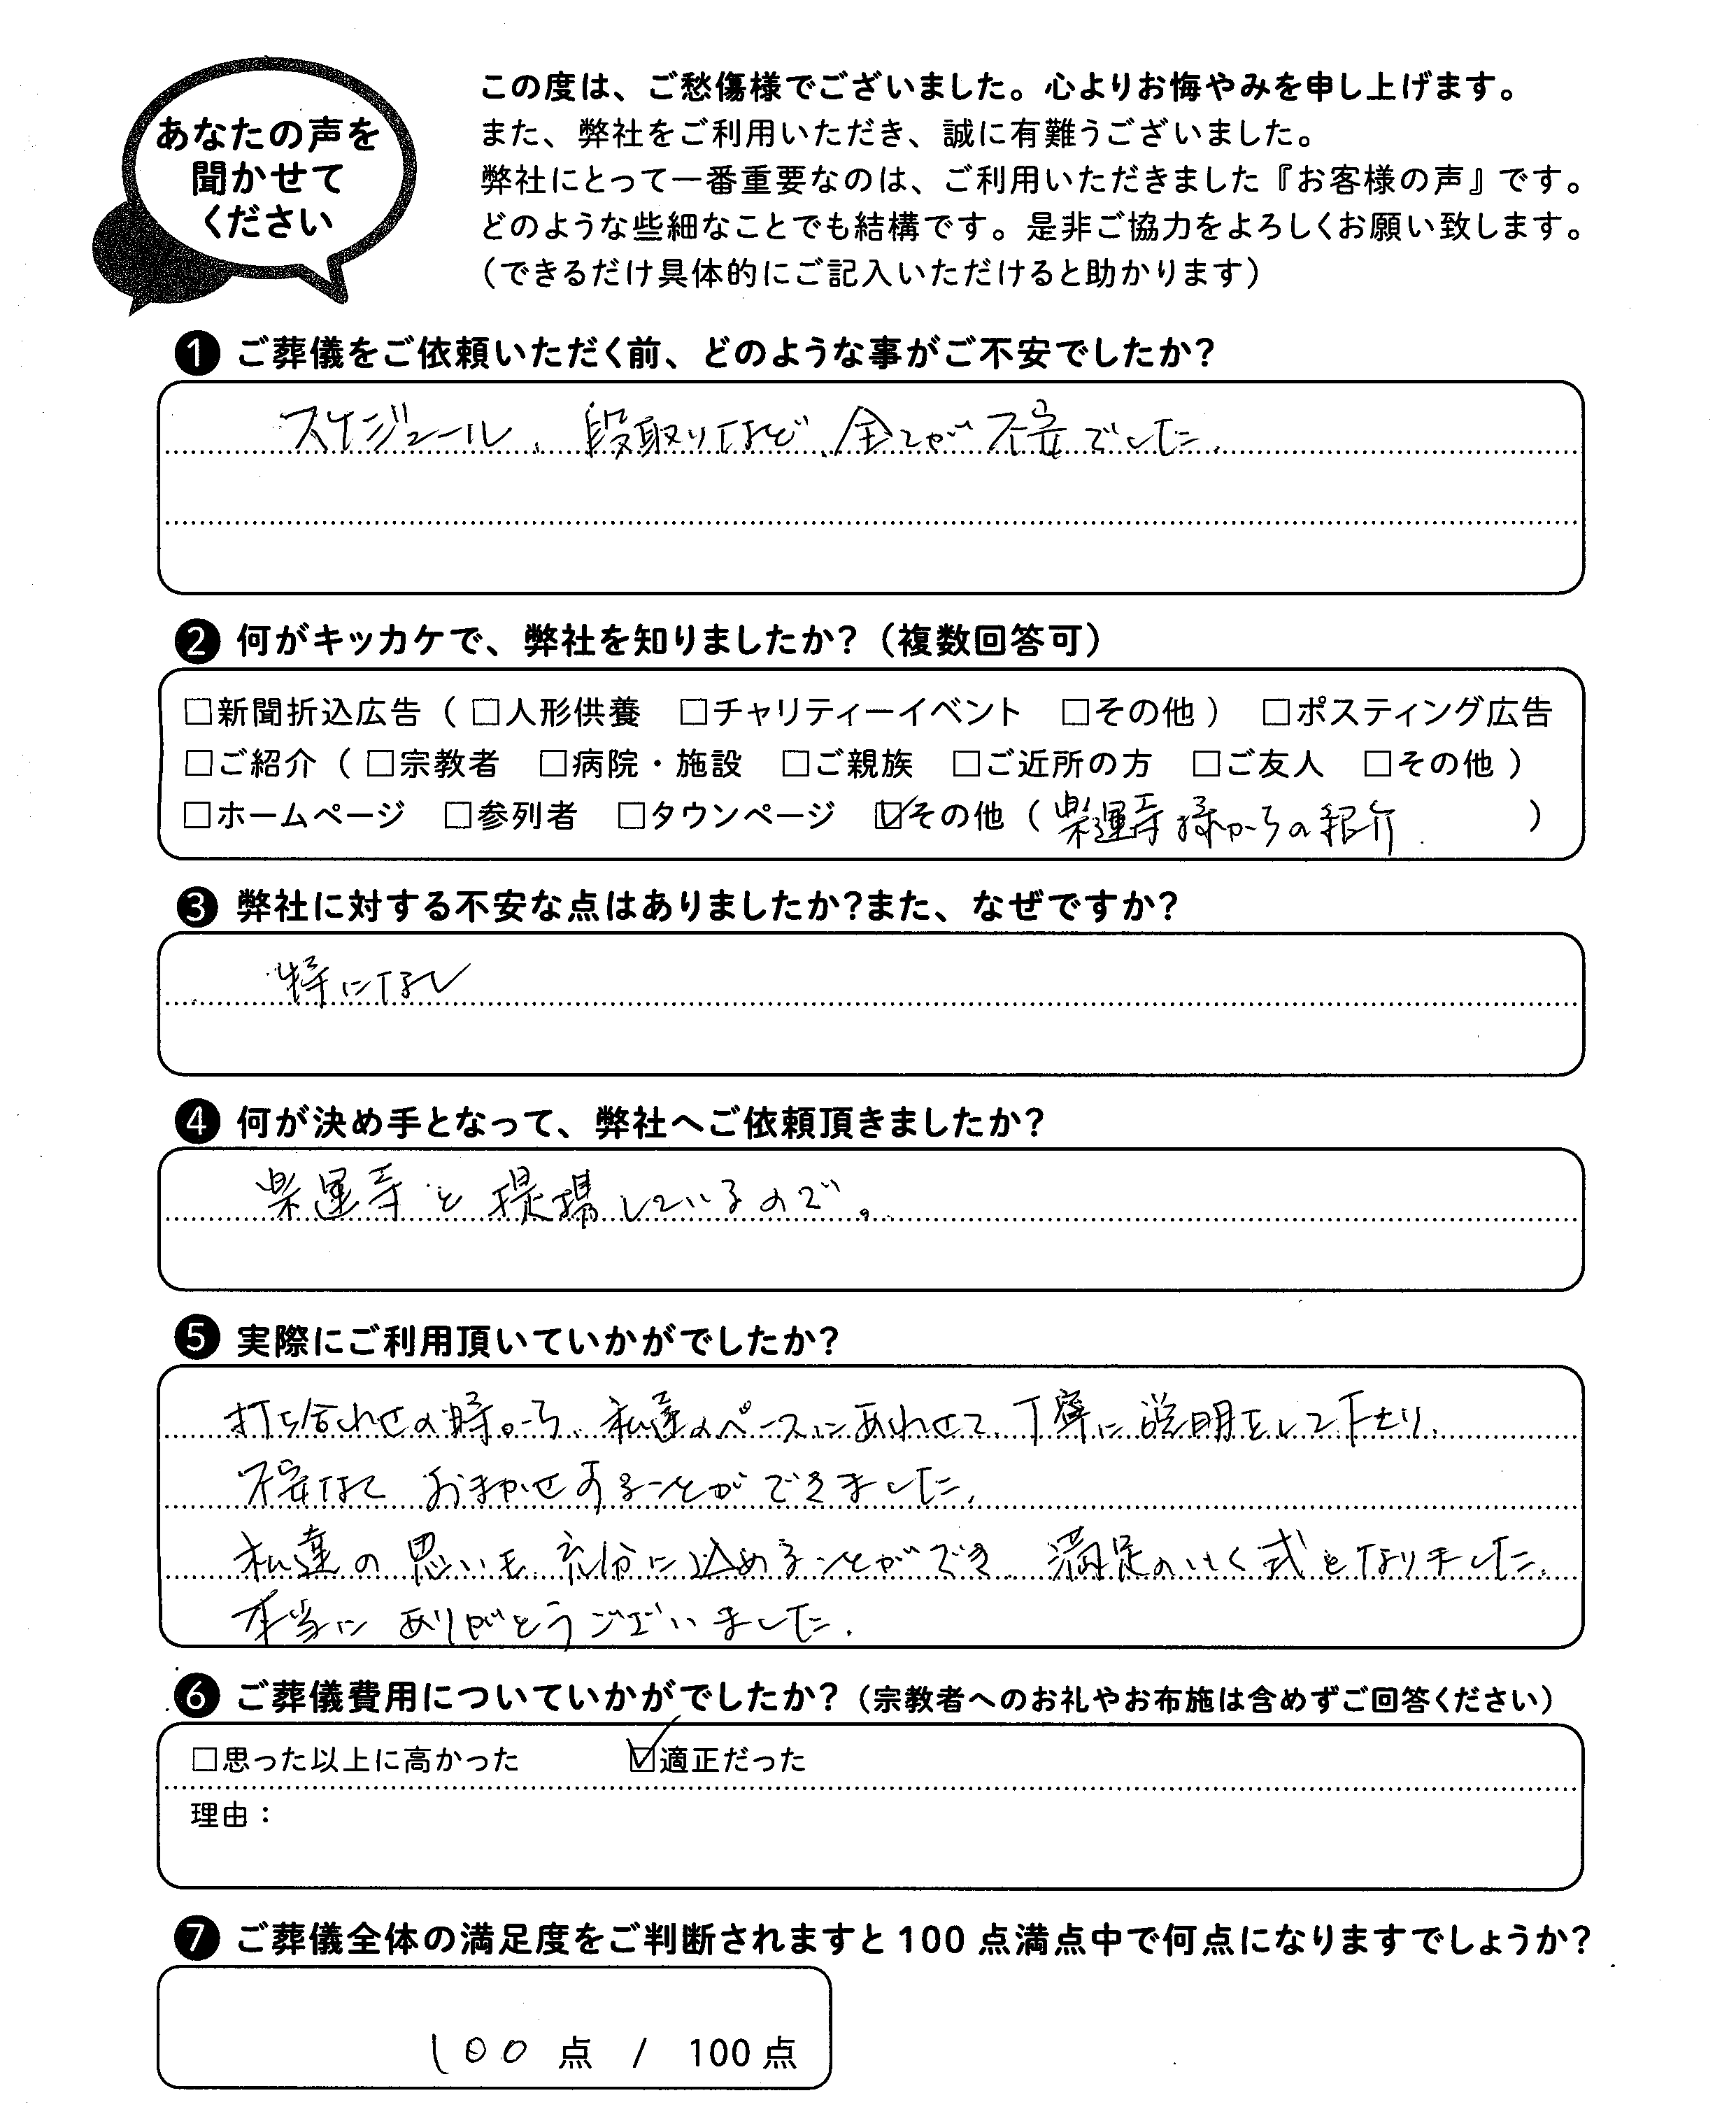 あなたの声を
聞かせて
ください
この度は、ご愁傷様でございました。心よりお悔やみを申し上げます。
また、弊社をご利用いただき、誠に有難うございました。
弊社にとって一番重要なのは、ご利用いただきました『お客様の声』です。
どのような些細なことでも結構です。是非ご協力をよろしくお願い致します。
（できるだけ具体的にご記入いただけると助かります）
❶ ご葬儀をご依頼いただく前、どのような事がご不安でしたか?
スケジュール、段取りなど、全てが不安でした。
❷ 何がキッカケで、弊社を知りましたか?（複数回答可）
□新聞折込広告（□人形供養 □チャリティーイベント □その他） □ポスティング広告
□ご紹介（□宗教者 □病院・施設 □ご親族 □ご近所の方 □ご友人 □その他）
□ホームページ □参列者 □タウンページ ☑その他（運寺様からの紹介）
❸ 弊社に対する不安な点はありましたか?また、なぜですか?
特になし
❹ 何が決め手となって、弊社へご依頼頂きましたか?
運寺と提携しているので。
❺ 実際にご利用頂いていかがでしたか?
打ち合わせの時から、私達のペースにあわせて、丁寧に説明をして下さり、
不安なく おまかせすることができました。
私達の思いも充分に込めることができ、満足のいく式となりました。
本当に ありがとうございました。
❻ ご葬儀費用についていかがでしたか?（宗教者へのお礼やお布施は含めずご回答ください）
□思った以上に高かった ☑適正だった
理由：
❼ ご葬儀全体の満足度をご判断されますと100点満点中で何点になりますでしょうか?
100 点 / 100点